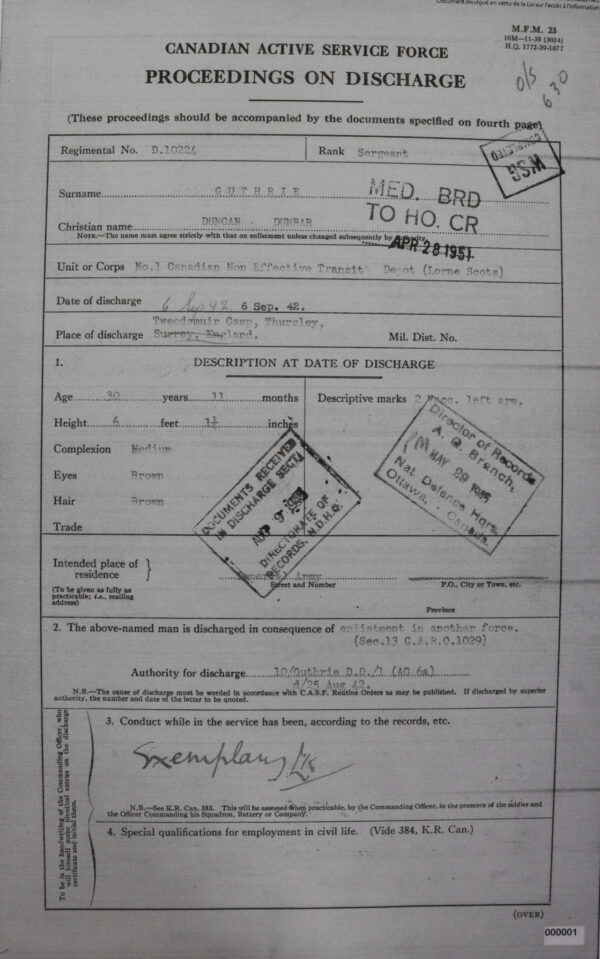 Document divulgué en vertu de la Loi sur l'accès à l'information
M.F.M. 23
10M—11-39 (5024)
H.Q. 1772-39-1677
O/S
630
CANADIAN ACTIVE SERVICE FORCE
PROCEEDINGS ON DISCHARGE
(These proceedings should be accompanied by the documents specified on fourth page)
Regimental No. D.10224 Rank Sergeant
COMPLETED
WSG
Surname GUTHRIE
MED. BRD
TO HO. CR
APR 28 1951
Christian name DUNCAN DUNBAR
NOTE.—The name must agree strictly with that on enlistment unless changed subsequently by
Unit or Corps No.1 Canadian Non Effective Transit Depot (Lorne Scots)
Date of discharge 6 Sep 42 6 Sep. 42.
Place of discharge Tweedsmuir Camp, Thursley,
Surrey, England. Mil. Dist. No.
1. DESCRIPTION AT DATE OF DISCHARGE
Age 30 years 11 months
Descriptive marks 2 Vacc. left arm.
Height 6 feet 1½ inches
Complexion Medium
Eyes Brown
Hair Brown
Trade
Director of Records
A. G. Branch,
MAY 29
Nat. Defence Hqrs.
Ottawa, - Canada.
DOCUMENTS RECEIVED
IN DISCHARGE SECT.
DIRECTORATE OF
RECORDS, N.D.H.Q.
Intended place of
residence
(To be given as fully as
practicable; i.e., mailing
address)
Army
Street and Number
P.O., City or Town, etc.
Province
2. The above-named man is discharged in consequence of enlistment in another force.
(Sec.13 C.A.R.O.1029)
Authority for discharge 10/Guthrie D.D./1 (AG 6a)
d/25 Aug 42.
N.B.—The cause of discharge must be worded in accordance with C.A.S.F. Routine Orders as may be published. If discharged by superior
authority, the number and date of the letter to be quoted.
To be in the handwriting of the Commanding Officer, who
will himself make identical entries on the discharge
certificate and initial them.
3. Conduct while in the service has been, according to the records, etc.
Exemplary
N.B.—See K.R. Can. 383. This will be assessed when practicable, by the Commanding Officer, in the presence of the soldier and
the Officer Commanding his Squadron, Battery or Company.
4. Special qualifications for employment in civil life. (Vide 384, K.R. Can.)
(OVER)
000001